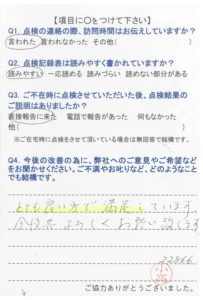 【項目に○をつけて下さい】
Q1. 点検の連絡の際、訪問時間はお伝えしていますか？
言われた 言われなかった その他（ ）
Q2. 点検記録表は読みやすく書かれていますか？
読みやすい 一応読める 読みづらい 読めない部分がある
Q3. ご不在時に点検させていただいた後、点検結果の
ご説明はありましたか？
直接報告に来た 電話で報告があった 何もなかった
その他（ ）
※ご在宅時に点検をさせて頂いている場合は無回答で結構です。
Q4. 今後の改善の為に、弊社へのご意見やご希望などを
お聞かせください。ご不満やお叱りなど、どのようなこと
でも結構です。
とても良い方で満足しています
今後共よろしくお願い致します
22866
ご協力ありがとうございました。